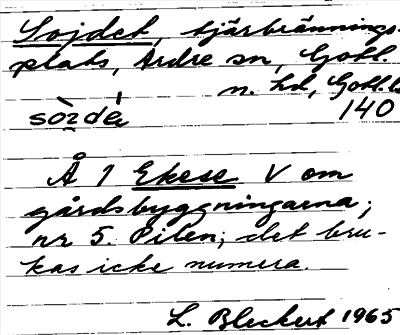 Sojdet, tjärbrännings-
plats, Ardre sn, Gotl.
n. hd, Gotl. l.
140
Å 1 Ekese V om
gårdsbyggningarna;
nr 5. Pilen; det bru-
kas icke numera.
L. Bleckert 1965